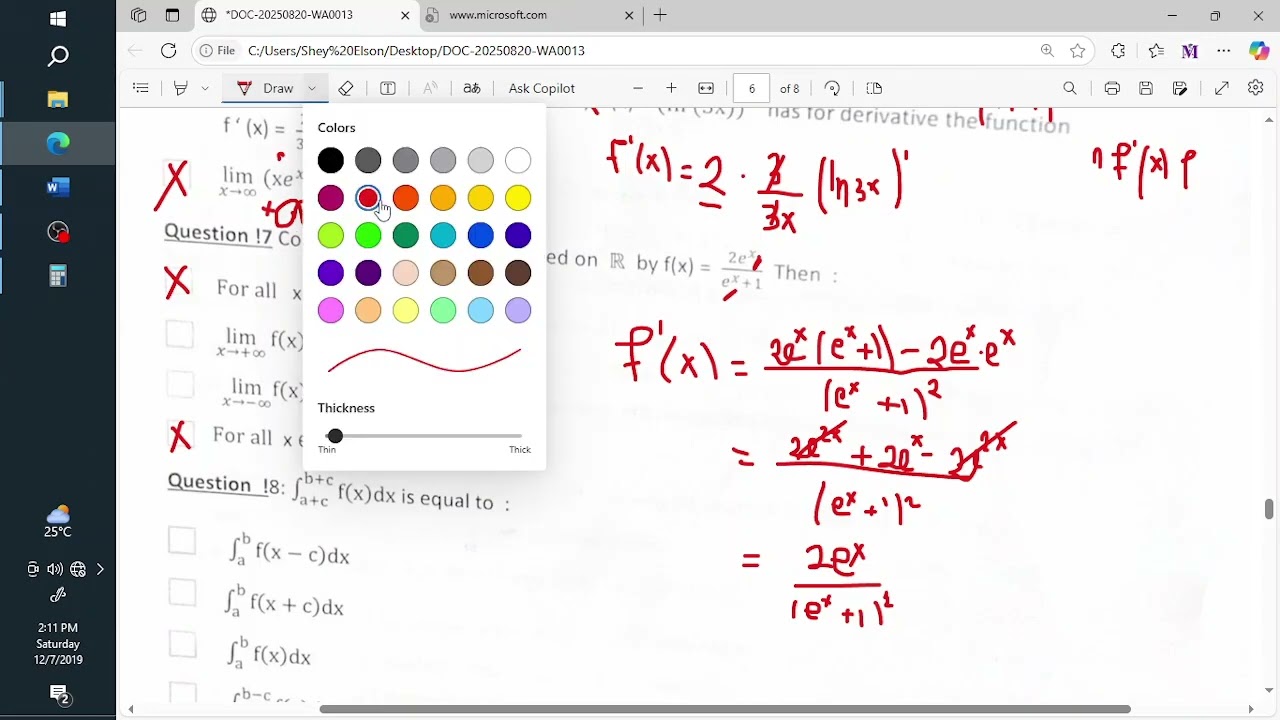 *DOC-20250820-WA0013
www.microsoft.com
File C:/Users/Shey%20Elson/Desktop/DOC-20250820-WA0013
Draw
Ask Copilot
6 of 8
Colors
Thickness
Thin Thick
has for derivative the function
f'(x) =
lim x→∞ (xe^x
Question !7 Co
ed on ℝ by f(x) = 2e^x / (e^x + 1) Then :
For all x
lim x→+∞ f(x)
lim x→-∞ f(x)
For all x
Question !8: ∫_{a+c}^{b+c} f(x)dx is equal to :
∫_a^b f(x − c)dx
∫_a^b f(x + c)dx
∫_a^b f(x)dx
f'(x) = 2 · 3/3x (ln 3x)'
f'(x) = (2e^x (e^x + 1) − 2e^x · e^x) / (e^x + 1)^2
= (2e^{2x} + 2e^x − 2e^{2x}) / (e^x + 1)^2
= 2e^x / (e^x + 1)^2
25°C
2:11 PM
Saturday
12/7/2019
2